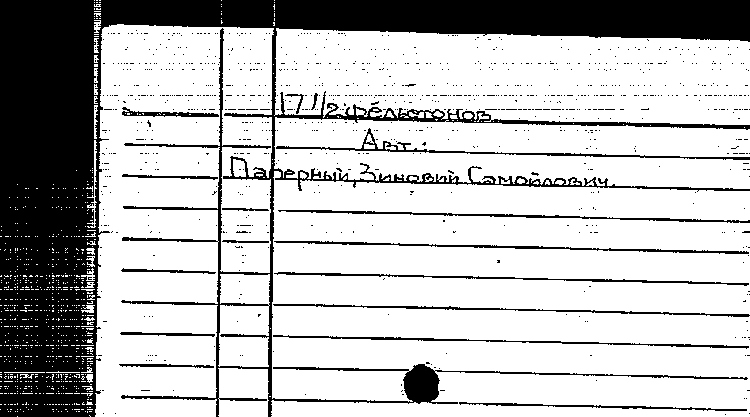 17 1/2 фельетонов
Авт.:
Паперный, Зиновий Самойлович.